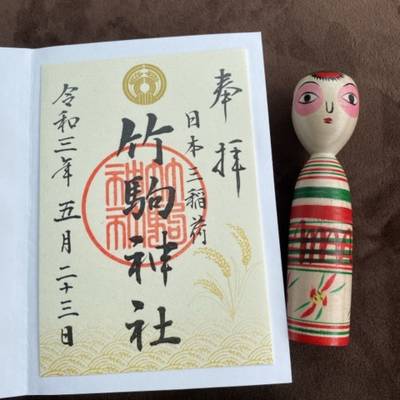 奉拝
日本三稲荷
竹駒神社
令和三年五月二十三日